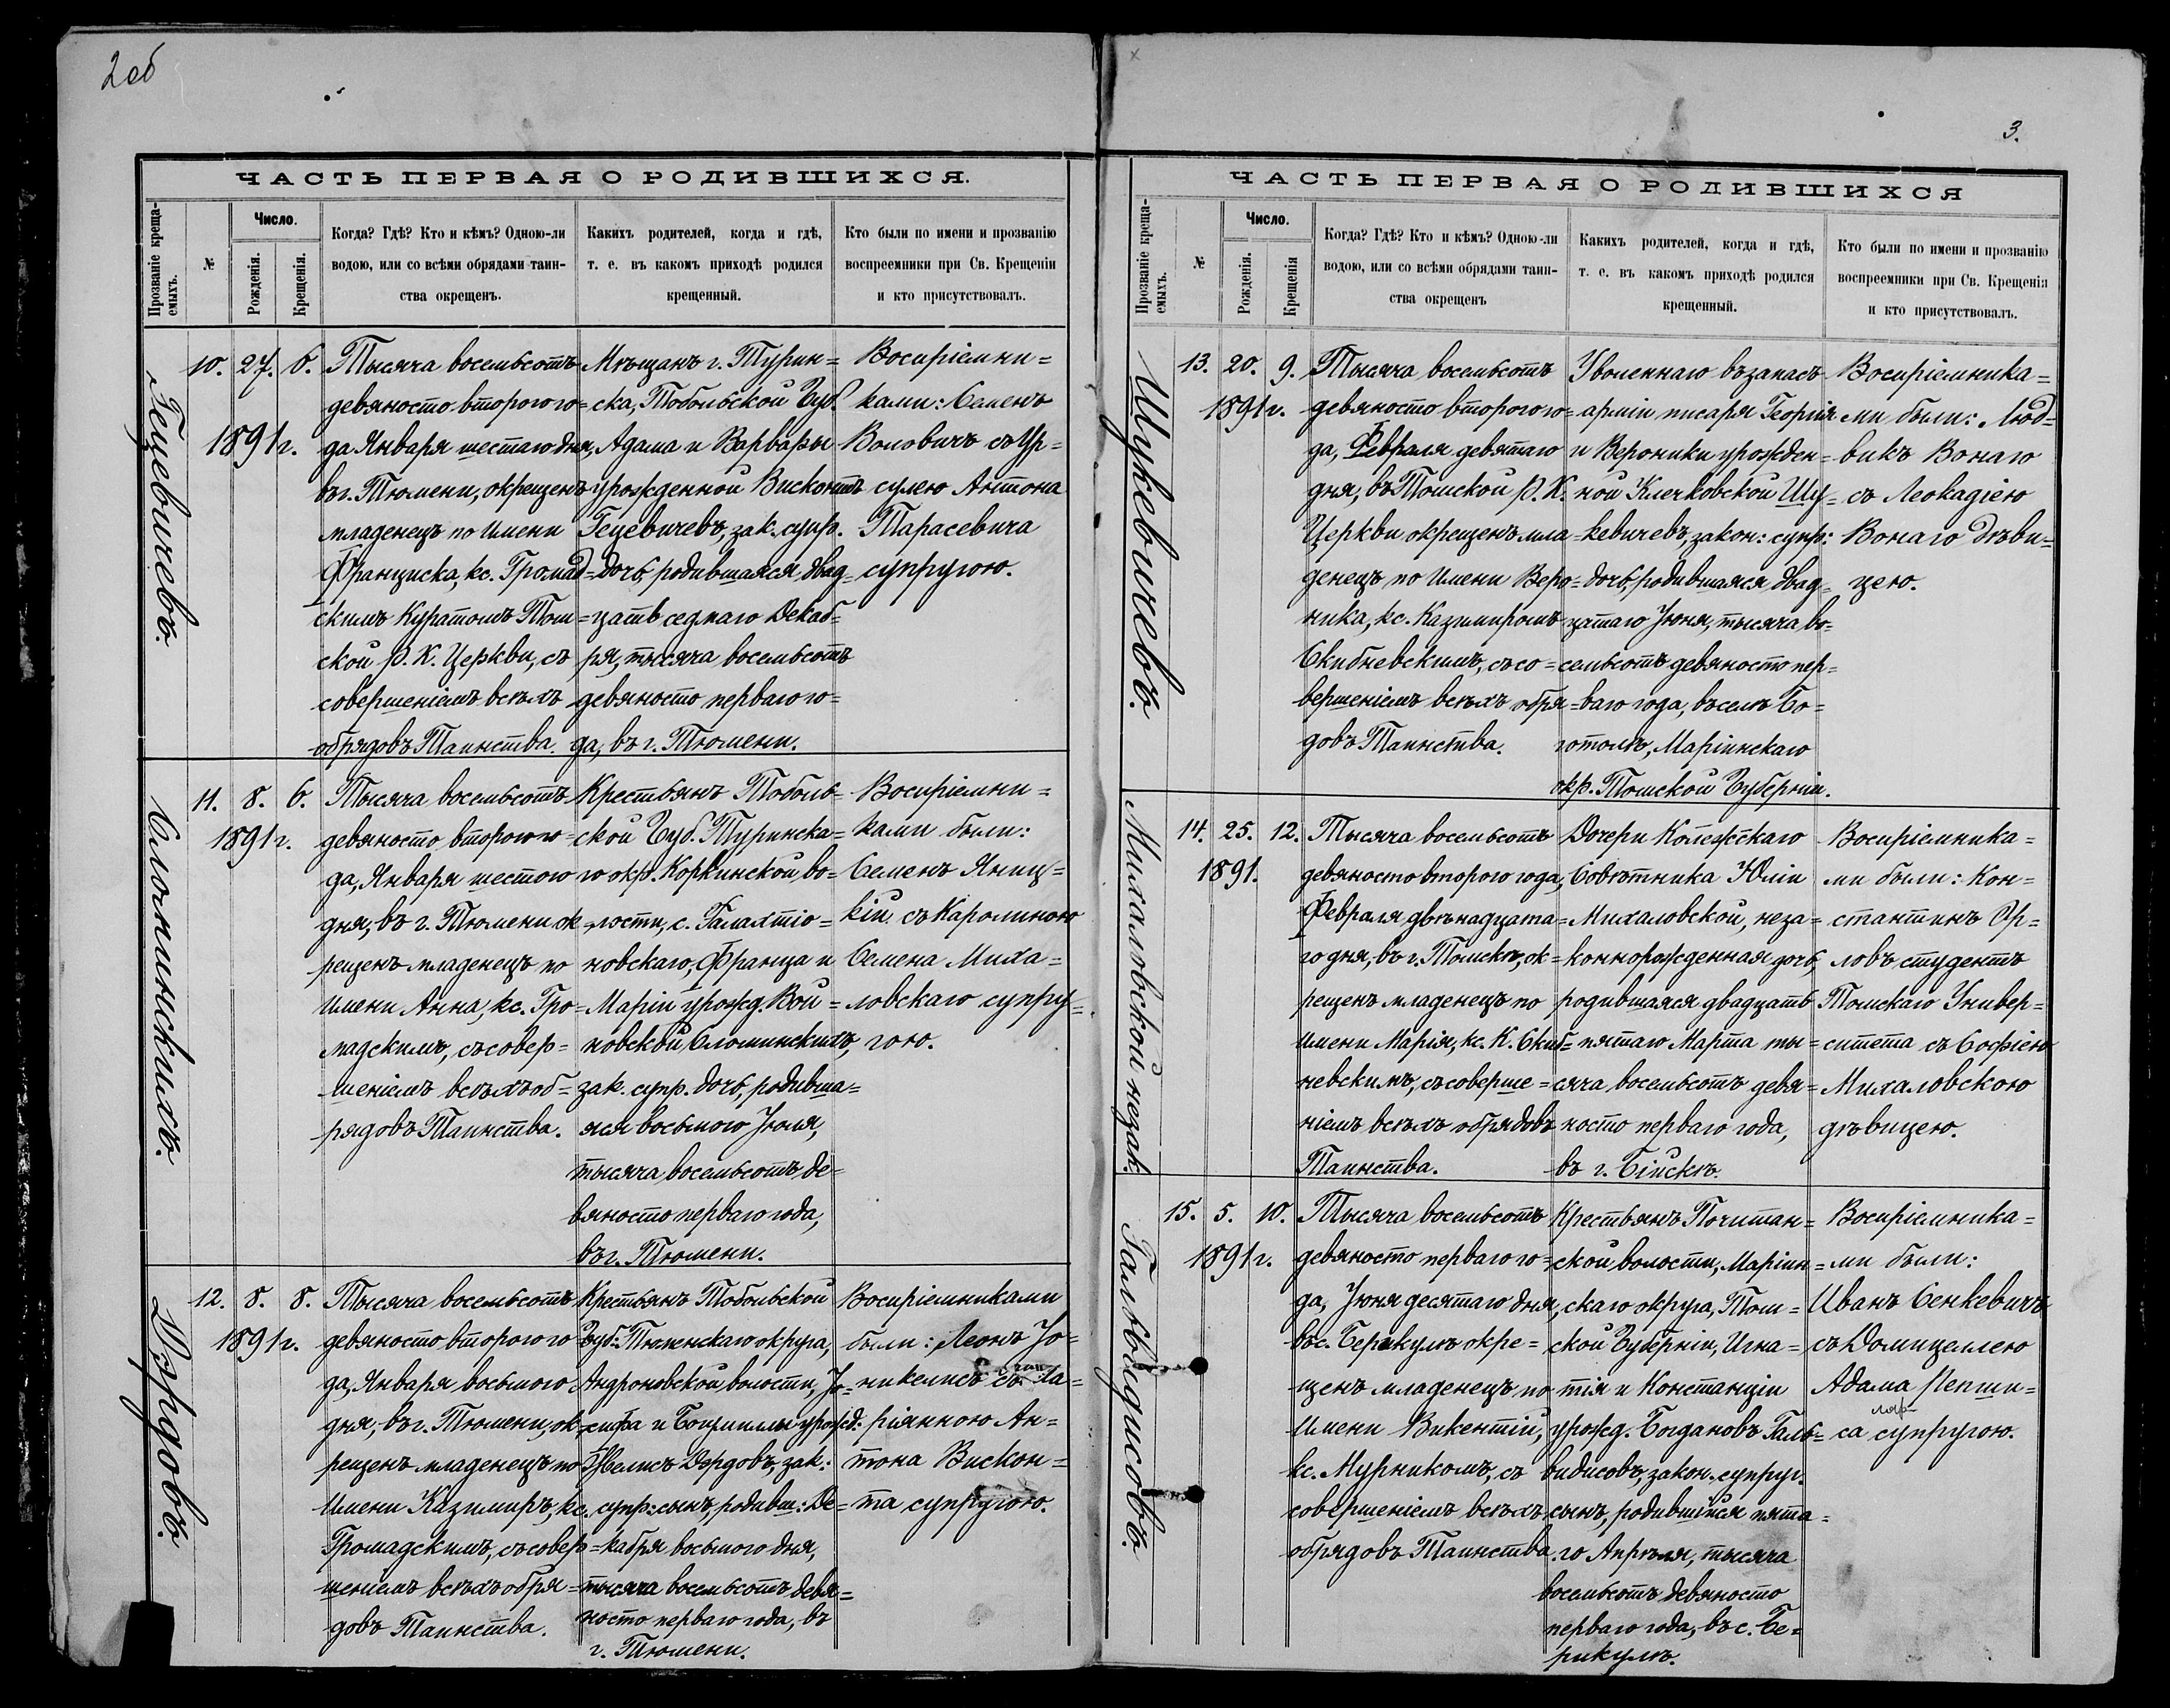 2 об
3.
ЧАСТЬ ПЕРВАЯ О РОДИВШИХСЯ.
Прозваніе креща-
емыхъ.
№
Число.
Рожденія.
Крещенія.
Когда? Гдѣ? Кто и кѣмъ? Одною-ли
водою, или со всѣми обрядами таин-
ства окрещенъ.
Какихъ родителей, когда и гдѣ,
т. е. въ какомъ приходѣ родился
крещенный.
Кто были по имени и прозванію
воспреемники при Св. Крещеніи
и кто присутствовалъ.
Гецевичевъ.
10. 27. 6.
1891 г.
Тысяча восемьсотъ
девяносто второго го-
да Января шестаго дня,
въ г. Тюмени, окрещенъ
младенецъ по имени
Франциска, кс. Громад-
скимъ Куратомъ Том-
ской Р. К. Церкви, съ
совершеніемъ всѣхъ
обрядовъ Таинства.
Мѣщанъ г. Турин-
ска, Тобольской Губ.
Адама и Варвары
урожденной Висконтъ
Гецевичевъ, зак. супр.
дочь, родившаяся двад-
цать седмаго Декаб-
ря, тысяча восемьсотъ
девяносто перваго го-
да, въ г. Тюмени.
Воспріемни-
ками: Семенъ
Воловичъ съ Ур-
сулею Антона
Тарасевича
супругою.
Сломинскихъ.
11. 8. 6.
1891 г.
Тысяча восемьсотъ
девяносто второго го-
да, Января шестого
дня, въ г. Тюмени ок-
рещенъ младенецъ по
имени Анна, кс. Гро-
мадскимъ, съ совер-
шеніемъ всѣхъ об-
рядовъ Таинства.
Крестьянъ Тоболь-
ской Губ. Туринска-
го окр. Коркинской, во-
лости, с. Галахтіо-
новскаго, Франца и
Маріи урожд. Вой-
новской Сломинскихъ,
зак. супр. дочь, родивша-
яся восьмого Іюля,
тысяча восемьсотъ де-
вяносто перваго года,
въ г. Тюмени.
Воспріемни-
ками были:
Семенъ Яниц-
кій съ Каролиною
Семена Миха-
ловскаго супру-
гою.
Дордовъ.
12. 8. 8.
1891 г.
Тысяча восемьсотъ
девяносто второго го
да, Января восьмого
дня, въ г. Тюмени, ок-
рещенъ младенецъ по
имени Казимиръ, кс.
Громадскимъ, съ совер-
шеніемъ всѣхъ обря-
довъ Таинства.
Крестьянъ Тобольской
Губ. Тюменскаго округа,
Андроновской волости, Іо-
сифа и урожд.
Дордовъ, зак:
супр: сынъ, родивш: Де-
кабря восьмого дня,
тысяча восемьсотъ девя-
носто перваго года, въ
г. Тюмени.
Воспріемниками
были: Леонъ Іо-
никелисъ съ
ріянною Ан-
тона Вискон-
та супругою.
ЧАСТЬ ПЕРВАЯ О РОДИВШИХСЯ
Прозваніе креща-
емыхъ.
№
Число.
Рожденія.
Крещенія
Когда? Гдѣ? Кто и кѣмъ? Одною-ли
водою, или со всѣми обрядами таин-
ства окрещенъ
Какихъ родителей, когда и гдѣ,
т. е. въ какомъ приходѣ родился
крещенный.
Кто были по имени и прозванію
воспреемники при Св. Крещеніи
и кто присутствовалъ.
Шукевичевъ.
13. 20. 9.
1891 г.
Тысяча восемьсотъ
девяносто второго го-
да, Февраля девятаго
дня, въ Томской Р. К.
Церкви окрещенъ мла-
денецъ по имени Веро-
ника, кс. Казимиромъ
Скибневскимъ, съ со-
вершеніемъ всѣхъ обря-
довъ Таинства.
Уволеннаго въ запасъ
арміи писаря Георгія
и Вероники урожден-
ной Клечковской Шу-
кевичевъ, закон: супр:
дочь, родившаяся двад-
цатаго Іюня, тысяча во-
семьсотъ девяносто пер-
ваго года, въ селѣ Бо-
готолѣ, Маріинскаго
окр. Томской Губерніи.
Воспріемника-
ми были: Люд-
викъ Вонаго
съ Леокадіею
Вонаго дѣви-
цею.
Михаловской незак.
14. 25. 12.
1891.
Тысяча восемьсотъ
девяносто второго года,
Февраля двѣнадцата-
го дня, въ г. Томскѣ, ок-
рещенъ младенецъ по
имени Марія, кс. К. Скиб-
невскимъ, съ соверше-
ніемъ всѣхъ обрядовъ
Таинства.
Дочери Колежскаго
Совѣтника Юліи
Михаловской, неза-
коннорожденная дочь,
родившаяся двадцать
пятаго Марта ты-
сяча восемьсотъ девя-
носто перваго года,
въ г. Бійскѣ.
Воспріемника-
ми были: Кон-
стантинъ Ор-
ловъ студентъ
Томскаго Универ-
ситета съ Софіею
Михаловскою
дѣвицею.
Гальвидисовъ.
15. 5. 10.
1891 г.
Тысяча восемьсотъ
девяносто перваго го-
да, Іюня десятаго дня,
въ с. Берикулѣ окре-
щенъ младенецъ по
имени Викентій,
кс. Мурникомъ, съ
совершеніемъ всѣхъ
обрядовъ Таинства.
Крестьянъ Почитан-
ской волости, Маріин-
скаго округа, Том-
ской Губерніи, Игна-
тія и Констанціи
урожд. Богдановъ Галь-
видисовъ, закон. супруг.
сынъ, родившійся пята-
го Апрѣля, тысяча
восемьсотъ девяносто
перваго года, въ с. Бе-
рикулѣ.
Воспріемника-
ми были:
Иванъ Сенкевичъ
съ Домицеллею
Адама Лепши-
са супругою.